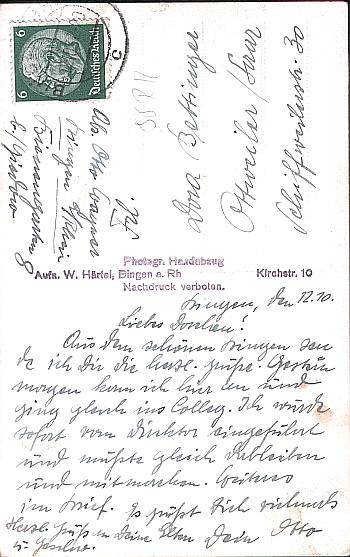 6
Deutsches Reich
6
Abs. Otto
Bingen a/Rhein
Frl.
Dora Bettinger
Ottweiler/Saar
Schiffweilerstr. 30
Photogr. Handabzug
Aufn. W. Härtel, Bingen a. Rh Kirchstr. 10
Nachdruck verboten.
Bingen, den 12.10.
Liebes Dorchen!
Aus dem schönen Bingen sen
de ich Dir die herzl. Grüße. Gestern
morgen kam ich hier an und
ging gleich ins Colleg. Ich wurde
sofort vom Direktor eingeführt
und mußte gleich dableiben
und mitmachen. Weiteres
im Brief. Es grüßt Dich vielmals
Dein Otto
Herzl. Grüße an Deine Eltern
u.